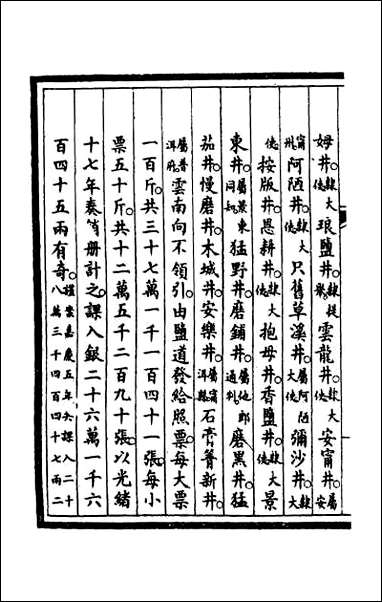 姆井隸大使琅鹽井隸提舉雲龍井隸大使安甯井屬安
甯州阿陋井隸大使只舊草溪井屬阿陋大使彌沙井隸大
使按版井恩耕井隸大使抱母井香鹽井隸大使景
東井屬景東同知猛野井磨鋪井屬他郎通判磨黑井猛
茄井慢磨井木城井安樂井屬洱縣石膏箐新井
屬普洱府雲南向不領引由鹽道發給照票每大票
一百斤共三十七萬一千一百四十一張每小
票五十斤共十二萬五千二百九十張以光緒
十七年奏銷册計之課入銀二十六萬一千六
百四十五兩有奇嘉慶五年課入二十八萬三千四百四十七兩二